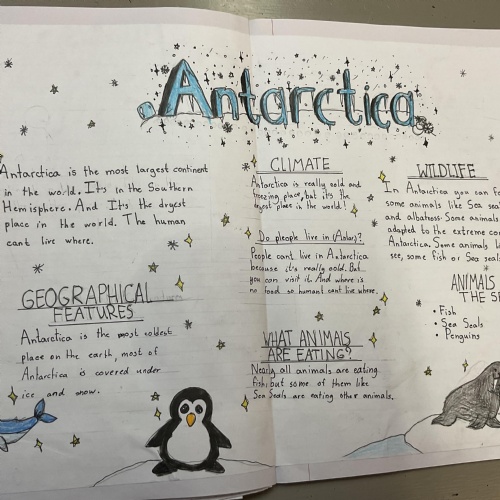 Antarctica
Antarctica is the most largest continent
in the world. It's in the Southern
Hemisphere. And It's the dryest
place in the world. The human
cant live where.
GEOGRAPHICAL
FEATURES
Antarctica is the most coldest
place on the earth, most of
Antarctica is covered under
ice and snow.
CLIMATE
Antarctica is really cold and
freezing place, but it's the
place in the world!
Do pleople live in (Antarc)?
People cant live in Antarctica
because it's really cold. But
you can visit it. And where is
no food so humant cant live where.
WHAT ANIMALS
ARE EATING?
Nearly all animals are eating
fish, but some of them like
Sea Seals are eating other animals.
WILDLIFE
In Antarctica you can
some animals like Sea
and albatross. Some animals
adapted to the extreme
Antarctica. Some animals
see, some fish or Sea seals
ANIMALS
THE
• Fish
• Sea Seals
• Penguins